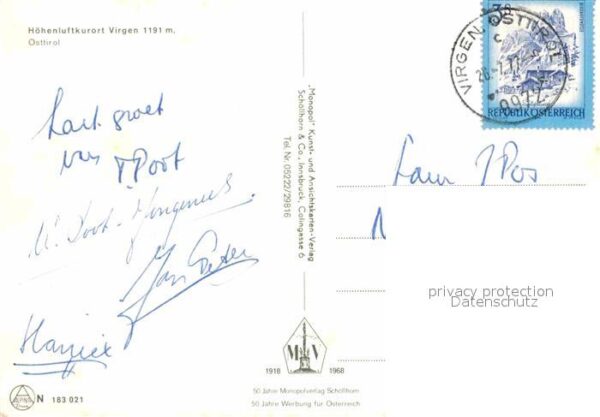 Höhenluftkurort Virgen 1191 m.
Osttirol
Hart. groet
van T. Post
Jan Peter
"Monopol" Kunst- und Ansichtskarten-Verlag
Schöllhorn & Co., Innsbruck, Colingasse 6
Tel. Nr. 05222/29816
VIRGEN, OSTTIROL
9972
REPUBLIK ÖSTERREICH
privacy protection
Datenschutz
M V
1918 1968
50 Jahre Monopolverlag Schöllhorn
50 Jahre Werbung für Österreich
N 183 021